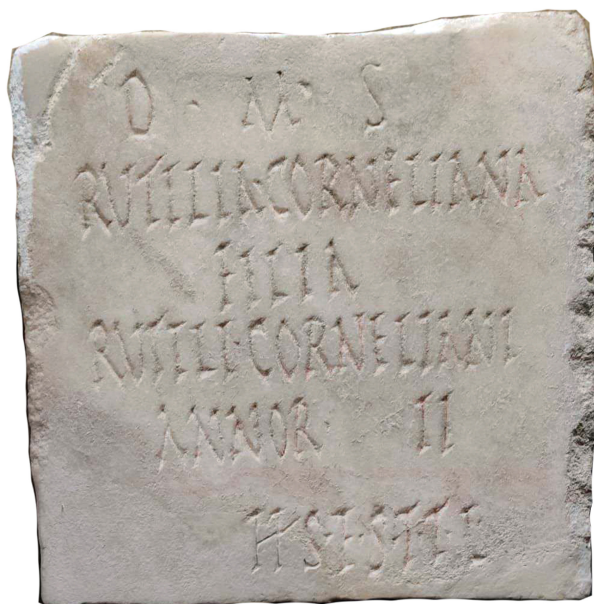 D · M · S
RUTILIA·CORNELIANA
FILIA
RUTILI·CORNELIANI
ANNOR· II
H·S·E·S·T·T·L